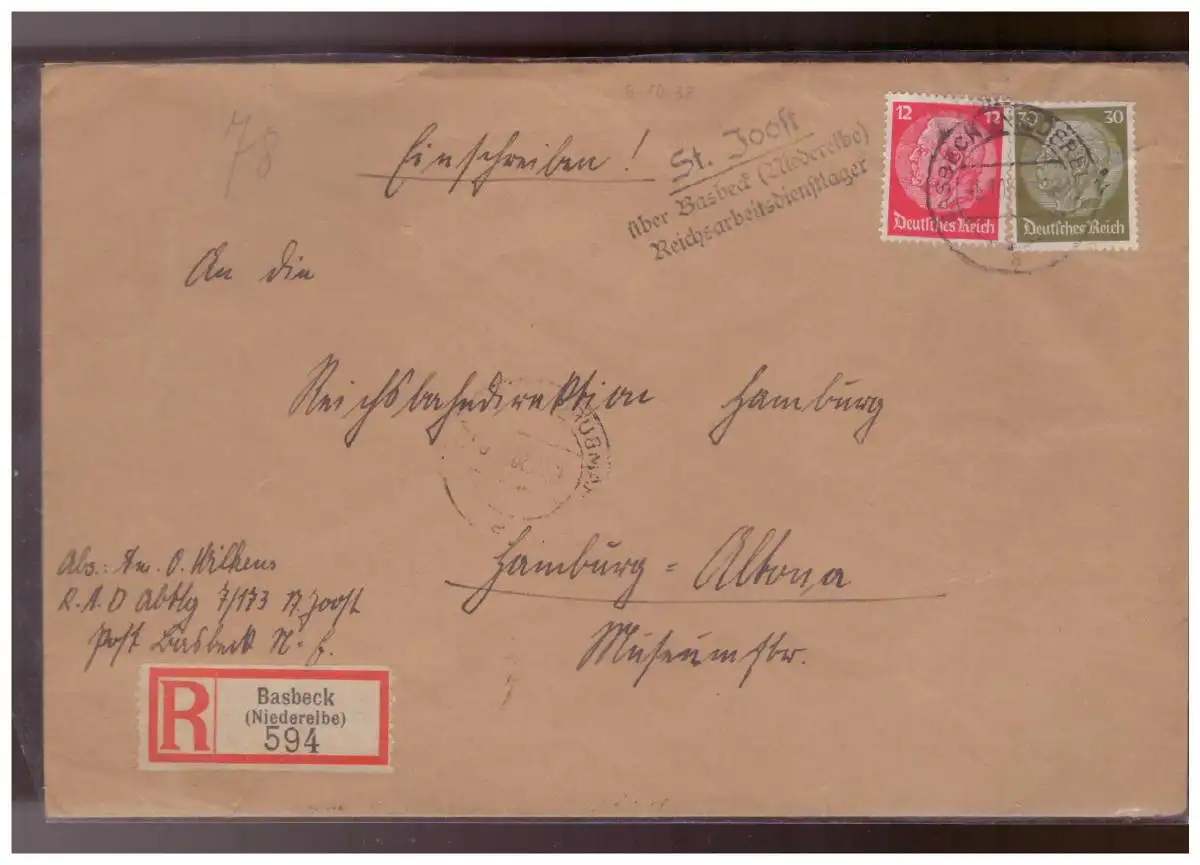 6-10-38
78
Einschreiben!
St. Joost
über Basbeck (Niederelbe)
Reichsarbeitsdienstlager
12 12
Deutsches Reich
30 30
Deutsches Reich
BASBECK (NIEDERELBE)
An die
Reichsbahndirektion Hamburg
Hamburg-Altona
Museumstr.
Abs.: Am. O. Wilkens
R.A.D Abtlg 7/173 St. Joost
Post Basbeck N. E.
R
Basbeck
(Niederelbe)
594